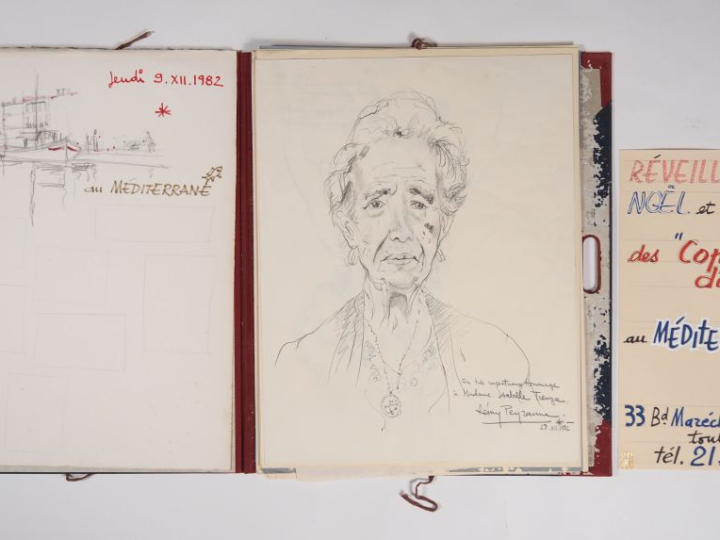 Jeudi 9.XII.1982
au MÉDITERRANÉ
En très respectueux hommage
à Madame Isabelle
Rémy Peyranne
29.XII.1982
RÉVEILL
NOËL et
des "Cop
d
au MÉDITE
33 Bd Maréch
tou
tél. 21